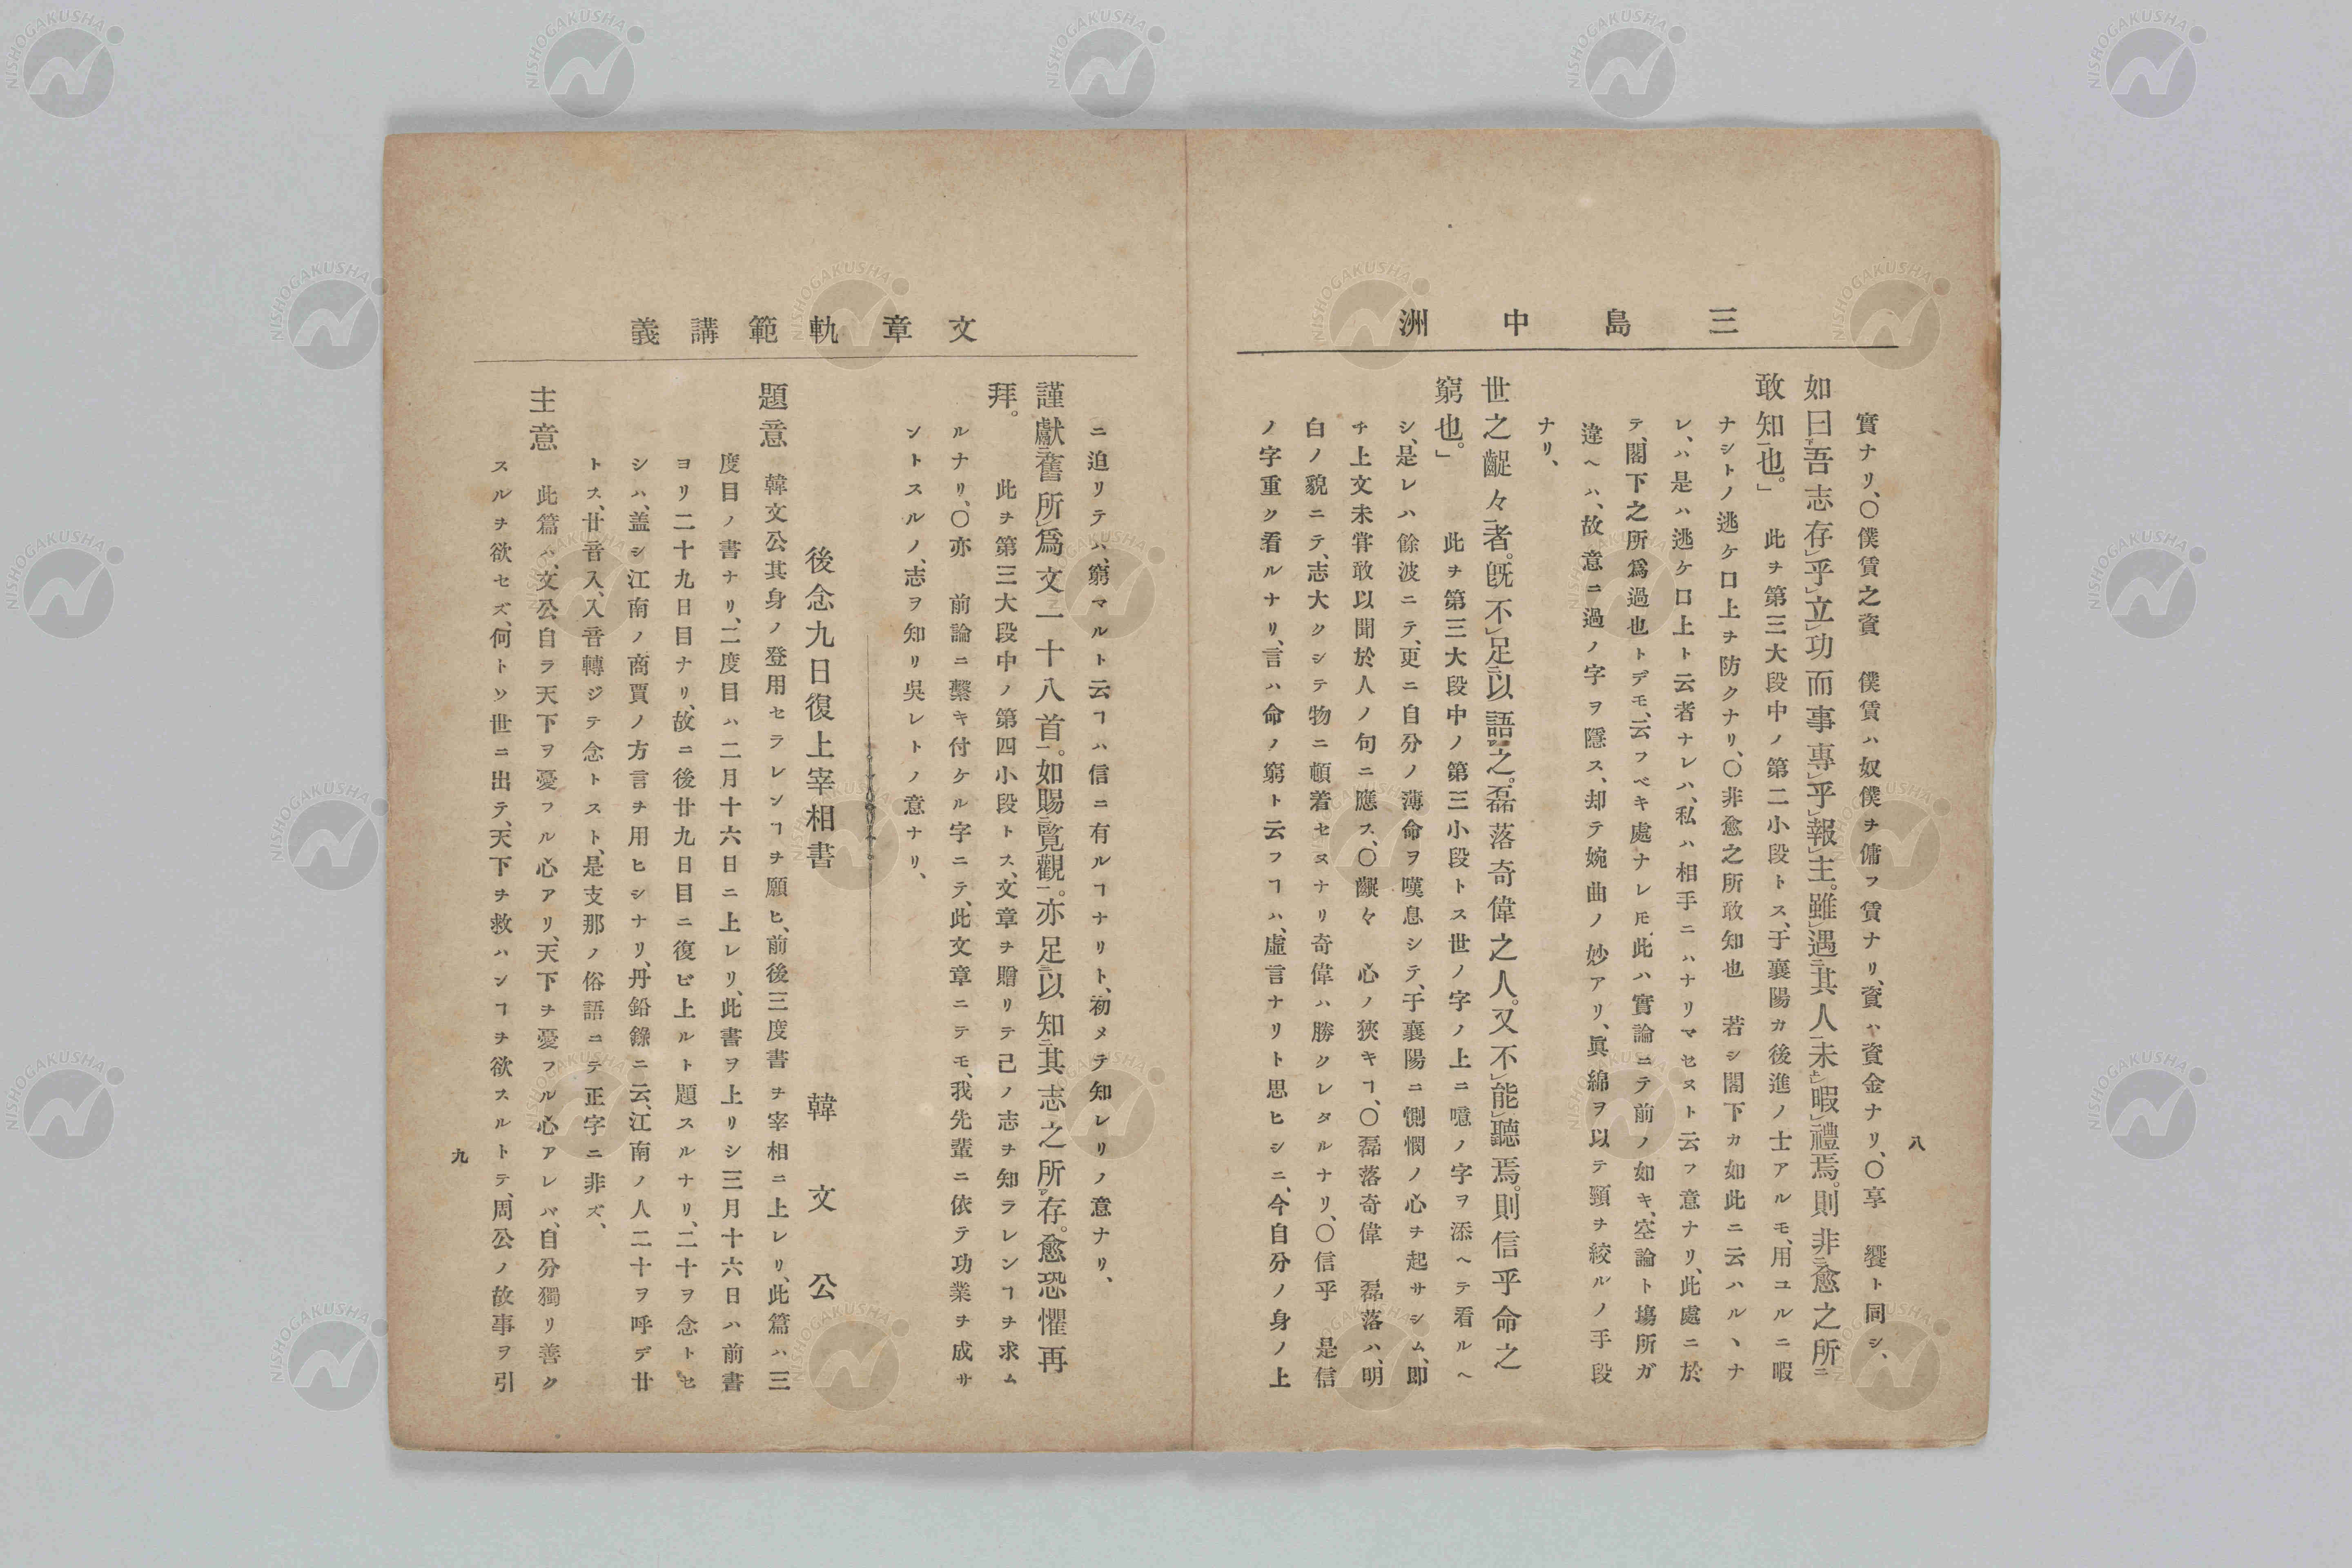 三島中洲
八
實ナリ、〇僕賃之資　僕賃ハ奴僕ヲ傭フ賃ナリ、資ハ資金ナリ、〇享　饗ト同シ、
如曰吾志存乎立功而事專乎報主。雖遇其人未暇禮焉。則非愈之所
敢知也。」　此ヲ第三大段中ノ第二小段トス、于襄陽カ後進ノ士アルモ、用ユルニ暇
ナシトノ逃ケ口上ヲ防クナリ、〇非愈之所敢知也　若シ閣下カ如此ニ云ハルヽナ
レハ、是ハ逃ケ口上ト云者ナレハ、私ハ相手ニハナリマセヌト云フ意ナリ、此處ニ於
テ、閣下之所爲過也トデモ、云フベキ處ナレ𪜈、此ハ實論ニテ前ノ如キ、空論ト塲所ガ
違ヘハ、故意ニ過ノ字ヲ隱ス、却テ婉曲ノ妙アリ、眞綿ヲ以テ頸ヲ絞ルノ手段
ナリ、
世之齪々者。旣不足以語之。磊落奇偉之人。又不能聽焉。則信乎命之
窮也。」　此ヲ第三大段中ノ第三小段トス世ノ字ノ上ニ噫ノ字ヲ添ヘテ看ルヘ
シ、是レハ餘波ニテ、更ニ自分ノ薄命ヲ嘆息シテ、于襄陽ニ惻憫ノ心ヲ起サシム、即
チ上文未甞敢以聞於人ノ句ニ應ス、〇齪々　心ノ狹キヿ、〇磊落奇偉　磊落ハ、明
白ノ貌ニテ、志大クシテ物ニ頓着セヌナリ奇偉ハ勝クレタルナリ、〇信乎　是信
ノ字重ク看ルナリ、言ハ命ノ窮ト云フヿハ、虛言ナリト思ヒシニ、今自分ノ身ノ上
文章軌範講義
ニ迫リテハ、窮マルト云ヿハ信ニ有ルヿナリト、初メテ知レリノ意ナリ、
謹獻舊所爲文一十八首。如賜覽觀。亦足以知其志之所存。愈恐懼再
拜。　此ヲ第三大段中ノ第四小段トス、文章ヲ贈リテ己ノ志ヲ知ラレンヿヲ求ム
ルナリ、〇亦　前論ニ繫キ付ケル字ニテ、此文章ニテモ、我先輩ニ依テ功業ヲ成サ
ントスルノ、志ヲ知リ吳レトノ意ナリ、
後念九日復上宰相書　韓文公
題意　韓文公其身ノ登用セラレンヿヲ願ヒ、前後三度書ヲ宰相ニ上レリ、此篇ハ三
度目ノ書ナリ、二度目ハ二月十六日ニ上レリ、此書ヲ上リシ三月十六日ハ前書
ヨリ二十九日目ナリ、故ニ後廿九日目ニ復ビ上ルト題スルナリ、二十ヲ念トセ
シハ、盖シ江南ノ商賈ノ方言ヲ用ヒシナリ、丹鉛錄ニ云、江南ノ人二十ヲ呼デ廿
トス、廿音入、入音轉ジテ念トスト、是支那ノ俗語ニテ正字ニ非ズ、
主意　此篇ハ、文公自ラ天下ヲ憂フル心アリ、天下ヲ憂フル心アレバ、自分獨リ善ク
スルヲ欲セズ、何トソ世ニ出テ、天下ヲ救ハンヿヲ欲スルトテ、周公ノ故事ヲ引
九